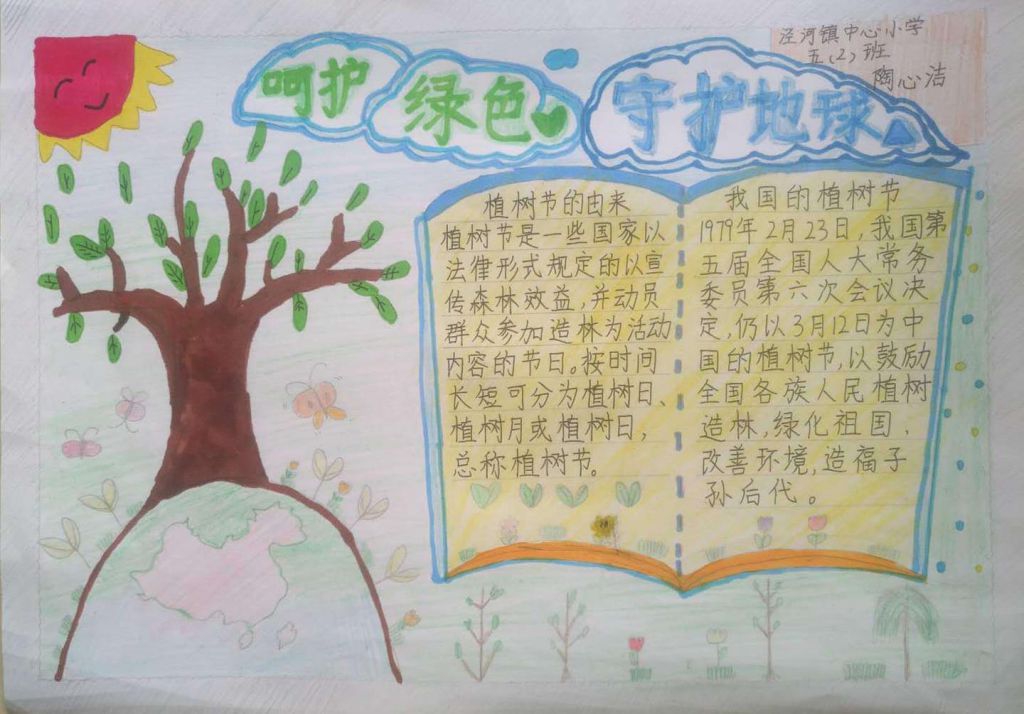 泾河镇中心小学
五(2)班
陶心洁
呵护 绿色 守护地球
植树节的由来
植树节是一些国家以
法律形式规定的以宣
传森林效益,并动员
群众参加造林为活动
内容的节日。按时间
长短可分为植树日、
植树月或植树日,
总称植树节。
我国的植树节
1979年2月23日,我国第
五届全国人大常务
委员第六次会议决
定,仍以3月12日为中
国的植树节,以鼓励
全国各族人民植树
造林,绿化祖国,
改善环境,造福子
孙后代。